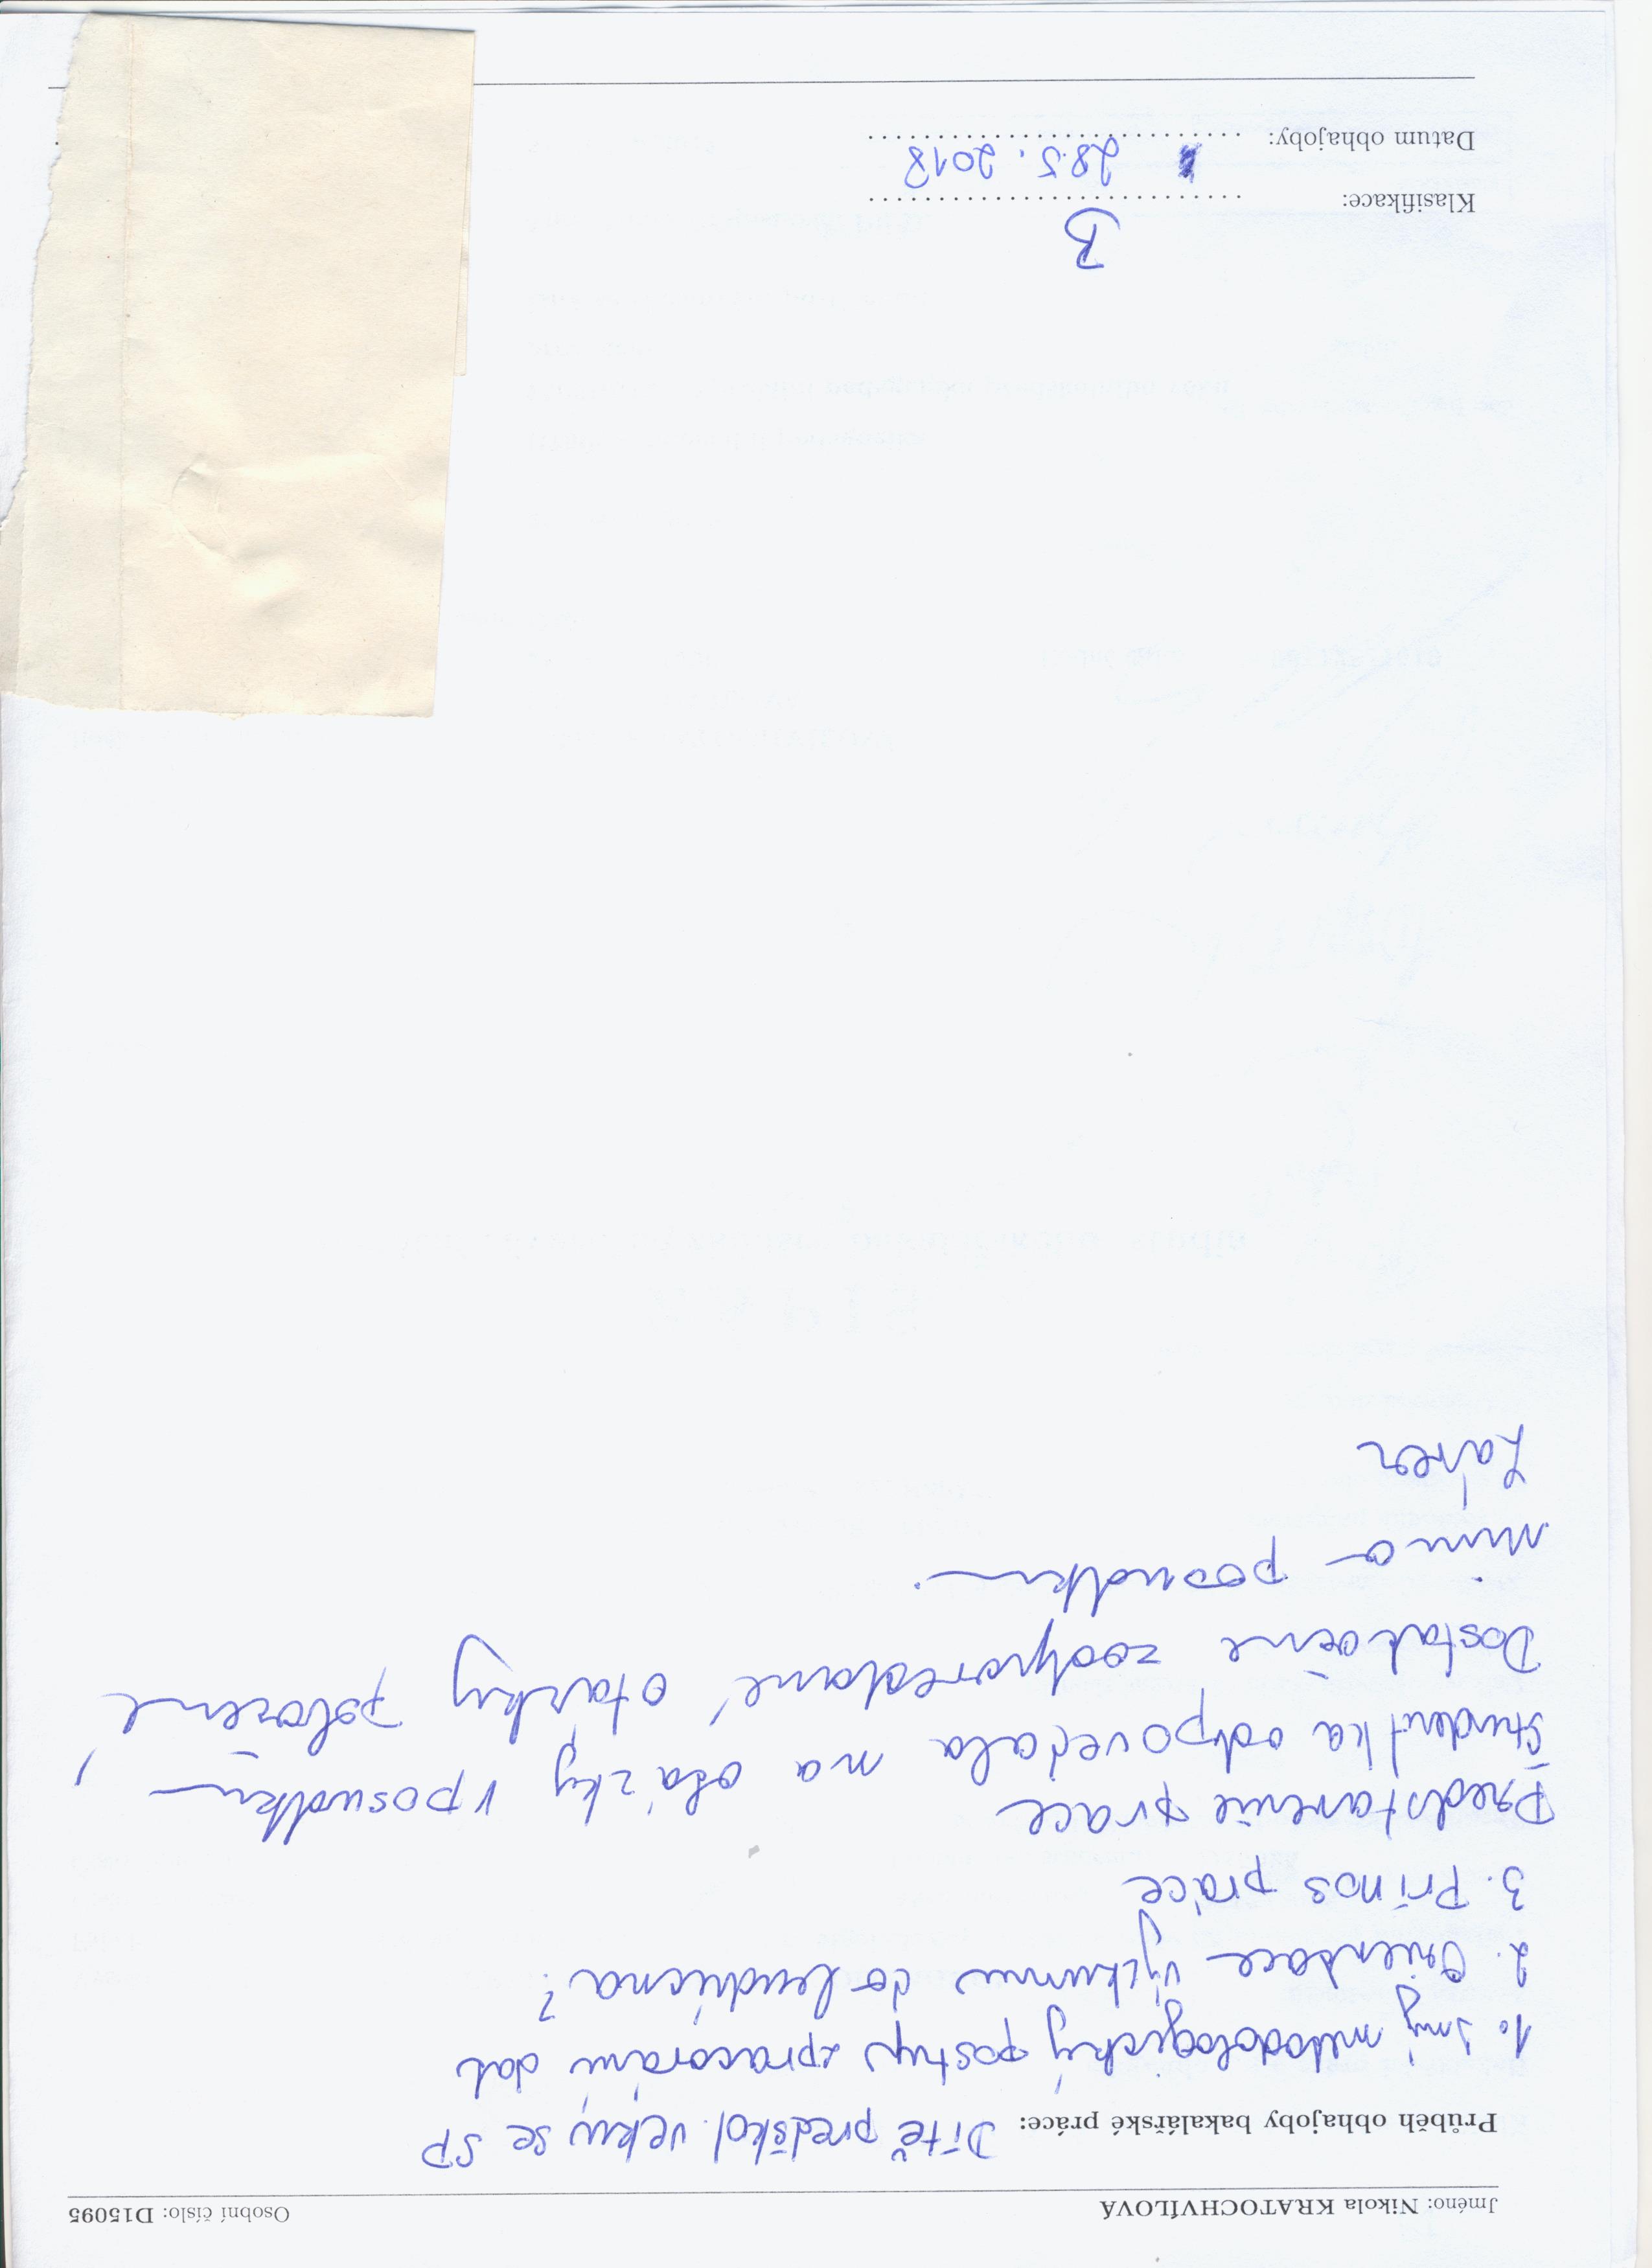 Jméno: Nikola KRATOCHVÍLOVÁ Osobní číslo: D15095
Průběh obhajoby bakalářské práce: Dítě předškol. věku se SP
1. Jiný metodologický postup zpracování dat
2. Orientace výzkumu do budúcna?
3. Prínos práce
Predstavenie práce
Študentka odpovedala na otázky v posudku,
Dostatočne zodpovedané otázky položené
mimo posudku.
Záver
Klasifikace: B
Datum obhajoby: 28.5.2018